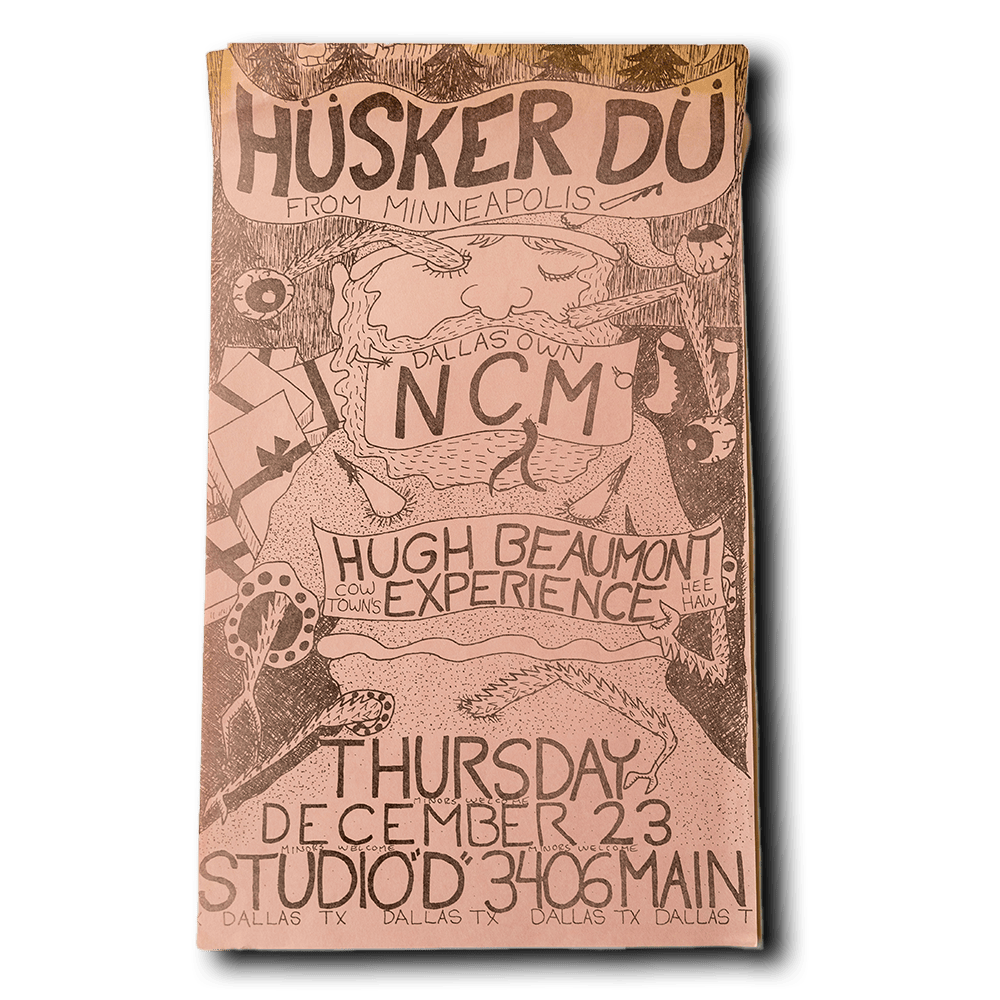 HÜSKER DÜ
FROM MINNEAPOLIS
DALLAS' OWN
NCM
HUGH BEAUMONT
COW TOWN'S EXPERIENCE HEE HAW
THURSDAY
MINORS WELCOME
DECEMBER 23
MINORS WELCOME MINORS WELCOME
STUDIO "D" 3406 MAIN
X DALLAS TX DALLAS TX DALLAS TX DALLAS T